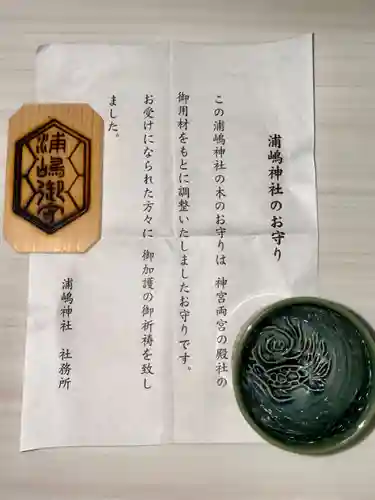 浦嶋神社のお守り
この浦嶋神社の木のお守りは 神宮両宮の殿社の
御用材をもとに調整いたしましたお守りです。
お受けになられた方々に 御加護の御祈祷を致し
ました。
浦嶋神社 社務所
浦嶋御守